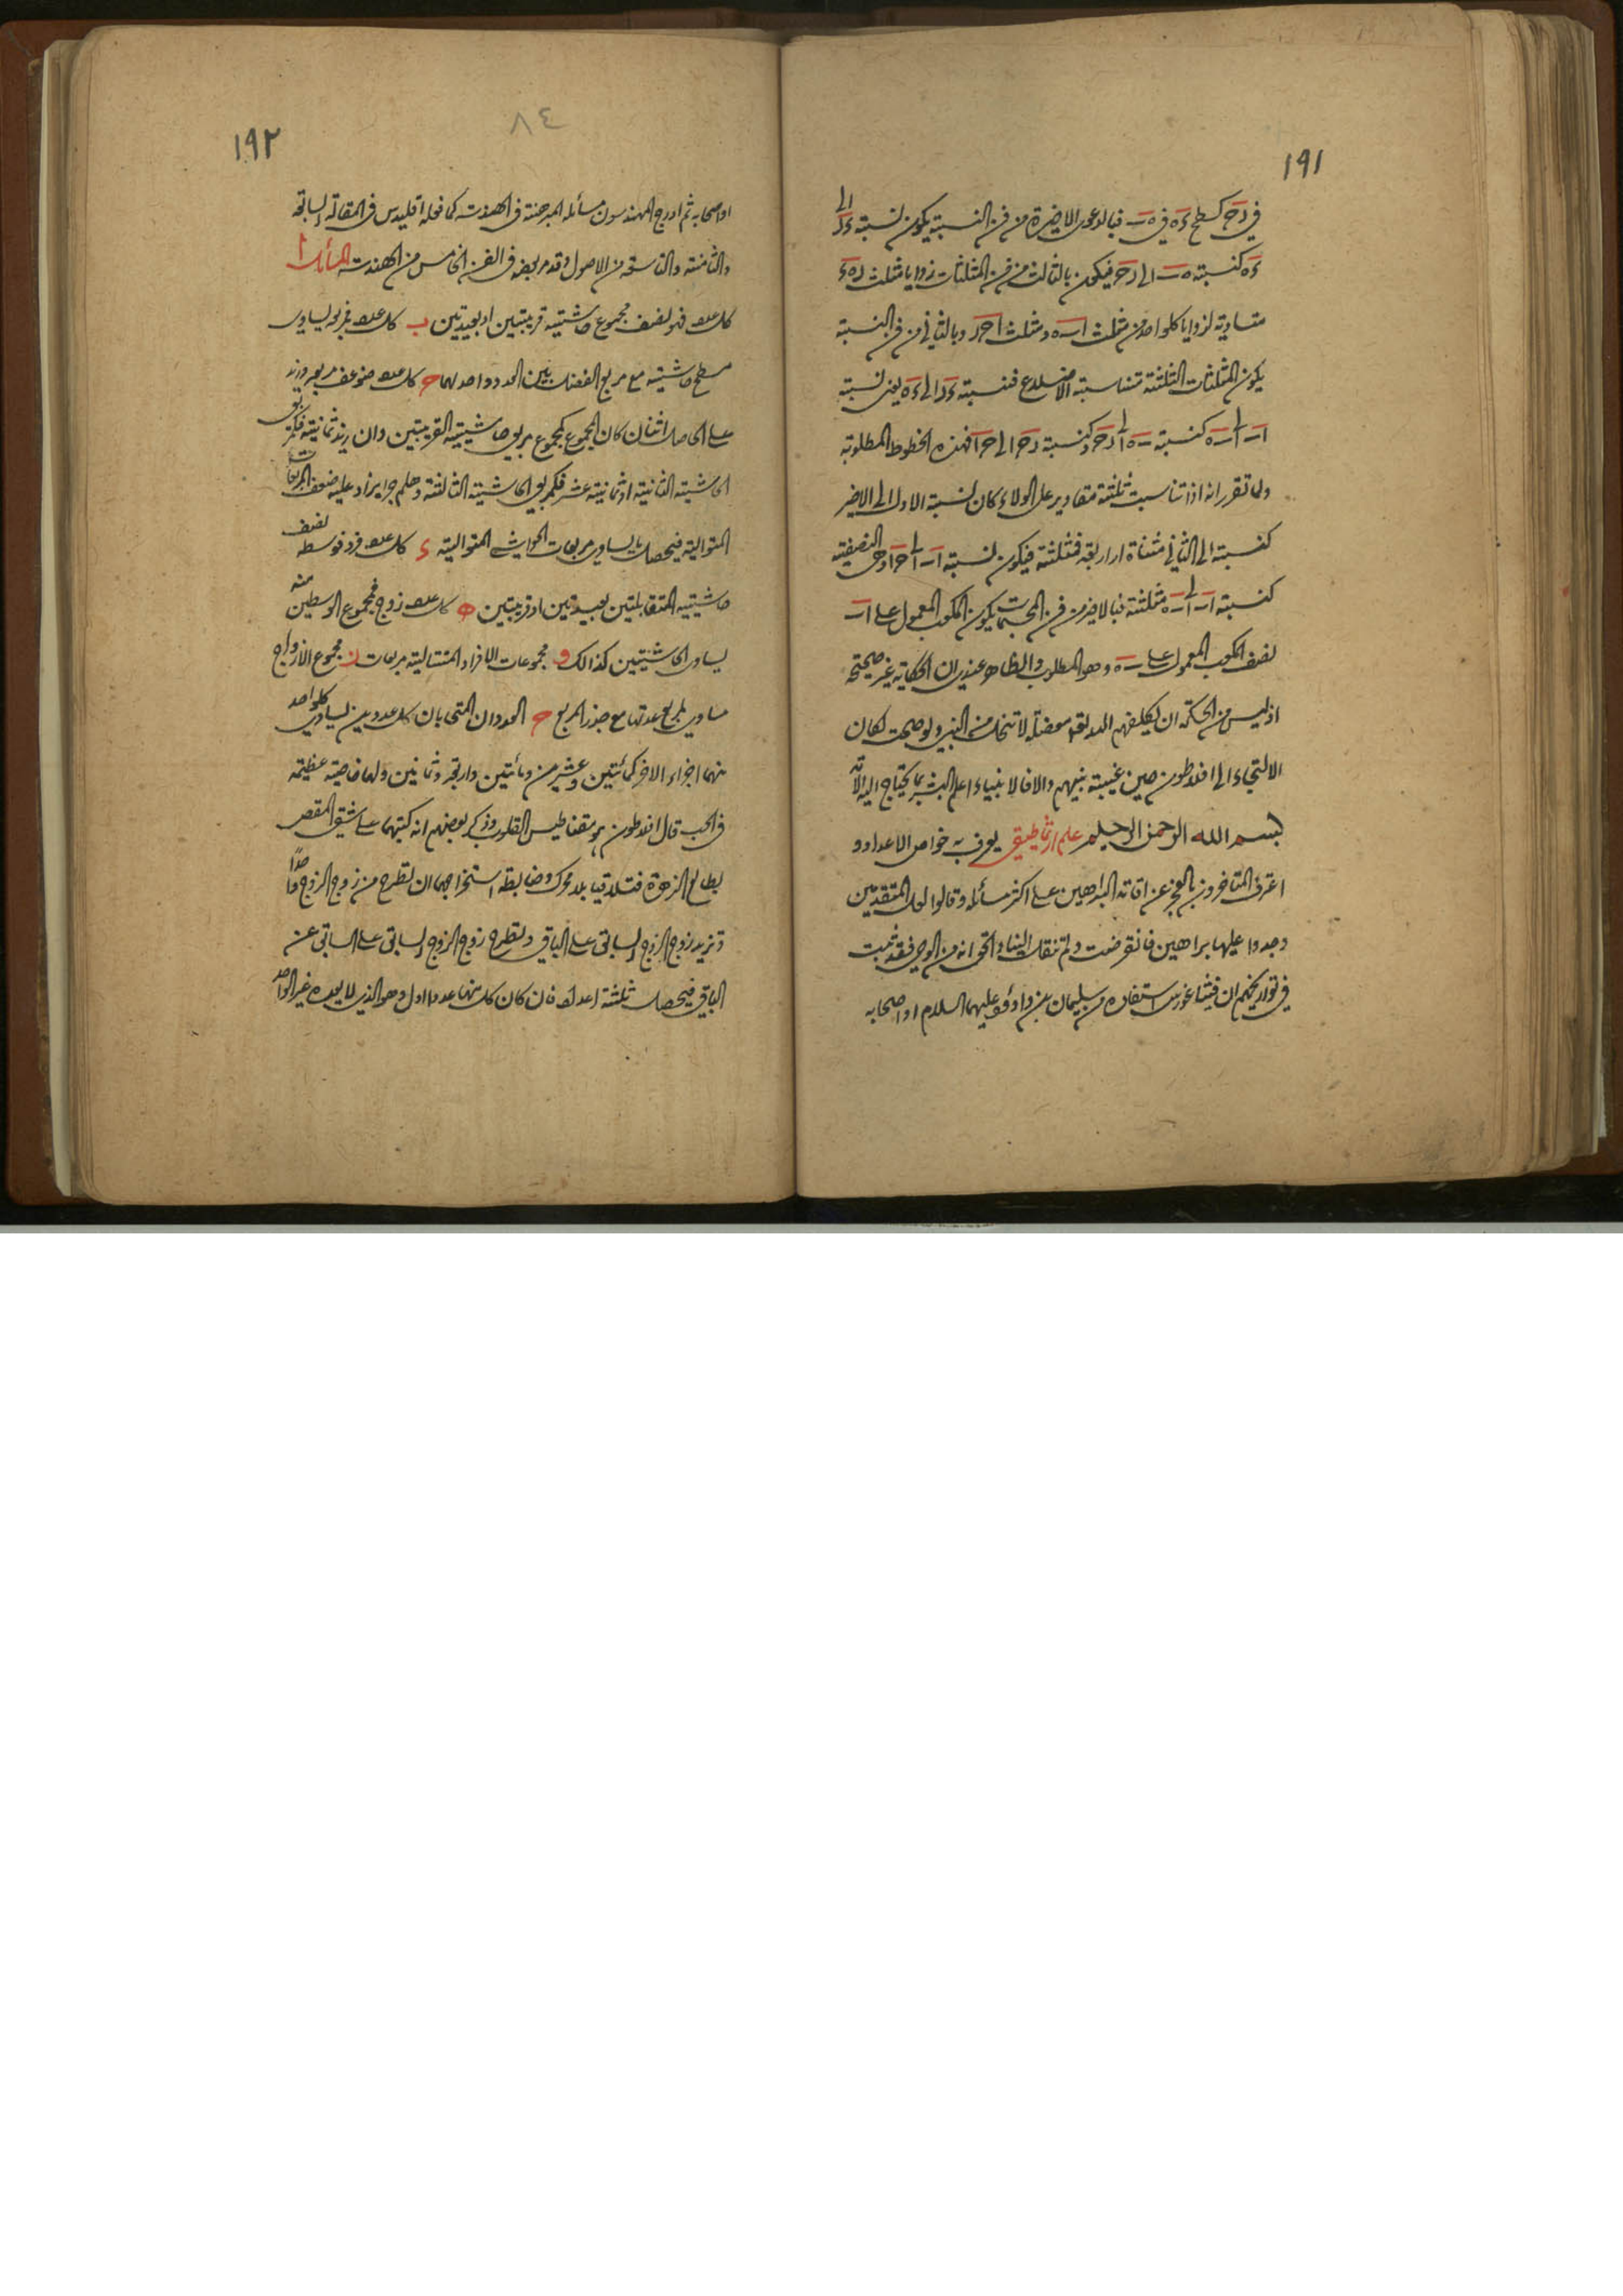 ١٩١
في دح كسطح ءه في ه ب فبالدعوى الاخيرة من فن النسبة يكون نسبة ءد الى
ءه كنسبة ه ب الى دح فيكون بالثالث من فن المثلثات زوايا مثلث ده ء
متساوية لزوايا كلواحد من مثلث اب ه ومثلث احد وبالثاني من فن النسبة
يكون المثلثات الثلثة متناسبة الاضلاع فنسبة ءد الى ءه يعني نسبة
اب الى ب ه كنسبة ب ه الى دح وكنسبة دح الى ح ا فهذه الخطوط المطلوبة
ولما تقرر انه اذا تناسبت ثلثة مقادير على الولاء كان نسبة الاول الى الاخير
كنسبته الى الثاني مثناة او اربعة فمثلثة فيكون نسبة اب الى ح ا وهي النصفية
كنسبة اب الى ب ه مثلثة فبالاخير من فن المجسمات يكون المكعب المعمول على اب
نصف المكعب المعمول على ب ه وهو المطلوب والظاهر عندي ان الحكاية غير صحيحة
اذ ليس من الحكمة ان يكلفهم الله تعالى معضلة لا تنحل من النبي ولو صحت لكان
الالتجاء الى افلاطون حين غيبة نبيهم والا فالانبياء اعلم البشر بما يحتاج اليه الامة
بسم الله الرحمن الرحيم علم ارثماطيقي يعرف به خواص الاعداد و
اعترف المتاخرون بالعجز عن اقامة البراهين على اكثر مسائله وقالوا لعل المتقدمين
وجدوا عليها براهين فانقرضت ولم تنقل الينا والحق انه من الوحي فقد ثبت
في تواريخكم ان فيثاغورس استفاده من سليمان بن داود عليهما السلام او اصحابه
١٩٢
٨٤
او اصحابه ثم ادرج المهندسون مسائله المبرهنة في الهندسة كما فعله اقليدس في المقالة السابعة
والثامنة والتاسعة من الاصول وقد مر بعضه في الفن الخامس من الهندسة المسائل ا
كل عدد فهو نصف مجموع حاشيتيه قريبتين او بعيدتين ب كل عدد فمربعه يساوي
مسطح حاشيتيه مع مربع الفضل بين العدد و احد لهما ح كل عدد ضوعف مربعه وزيد
على الحاصل اثنان كان المجموع كمجموع مربعي حاشيتيه القريبتين وان زيد ثمانية فكمربعي
الحاشية الثانية او ثمانية عشر فكمربعي الحاشية الثالثة وهلم جرا يزاد عليه ضعف المربعات
المتوالية فيحصل ما يساوي مربعات الحواشي المتوالية ء كل عدد فرد فوسطه نصف
حاشيتيه المتقابلتين بعيدتين او قريبتين ه كل عدد زوج فمجموع الوسطين منه
يساوي الحاشيتين كذالك و مجموعات الافراد المتتالية مربعات ز مجموع الازواج
مساوي لمربع عدتها مع جذر المربع ح العددان المتحابان كل عددين يساوي كلواحد
منهما اجزاء الاخر كمائتين وعشرين ومائتين واربعة وثمانين ولهما خاصية عظيمة
في الحب قال افلاطون هو مقناطيس القلوب وذكر بعضهم انه كتبهما على شقي المقص
بطالع الزهرة فتلاقيا بلا محرك وضابطة استخراجهما ان تطرح من زوج الزوج واحدا
وتزيد زوج الزوج السابق على الباقي وتطرح زوج الزوج السابق على السابق عن
الباقي فيحصل ثلثة اعداد فان كان كل منها عددا اول وهو الذي لا يعده غير الواحد